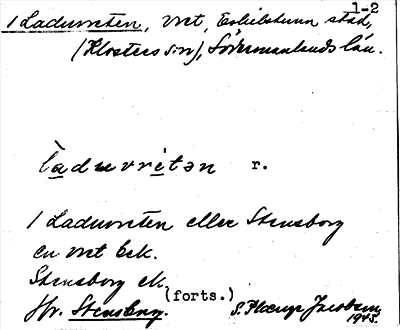 1-2
/ Laduvreten, vret, Eskilstuna stad,
(Klosters sn), Södermanlands län.
làduvretən r.
/ Laduvreten eller Stensborg
en vret Eek.
Stensborg ek.
Jfr. Stensborg. (forts.) S. Jacobsen
1945.